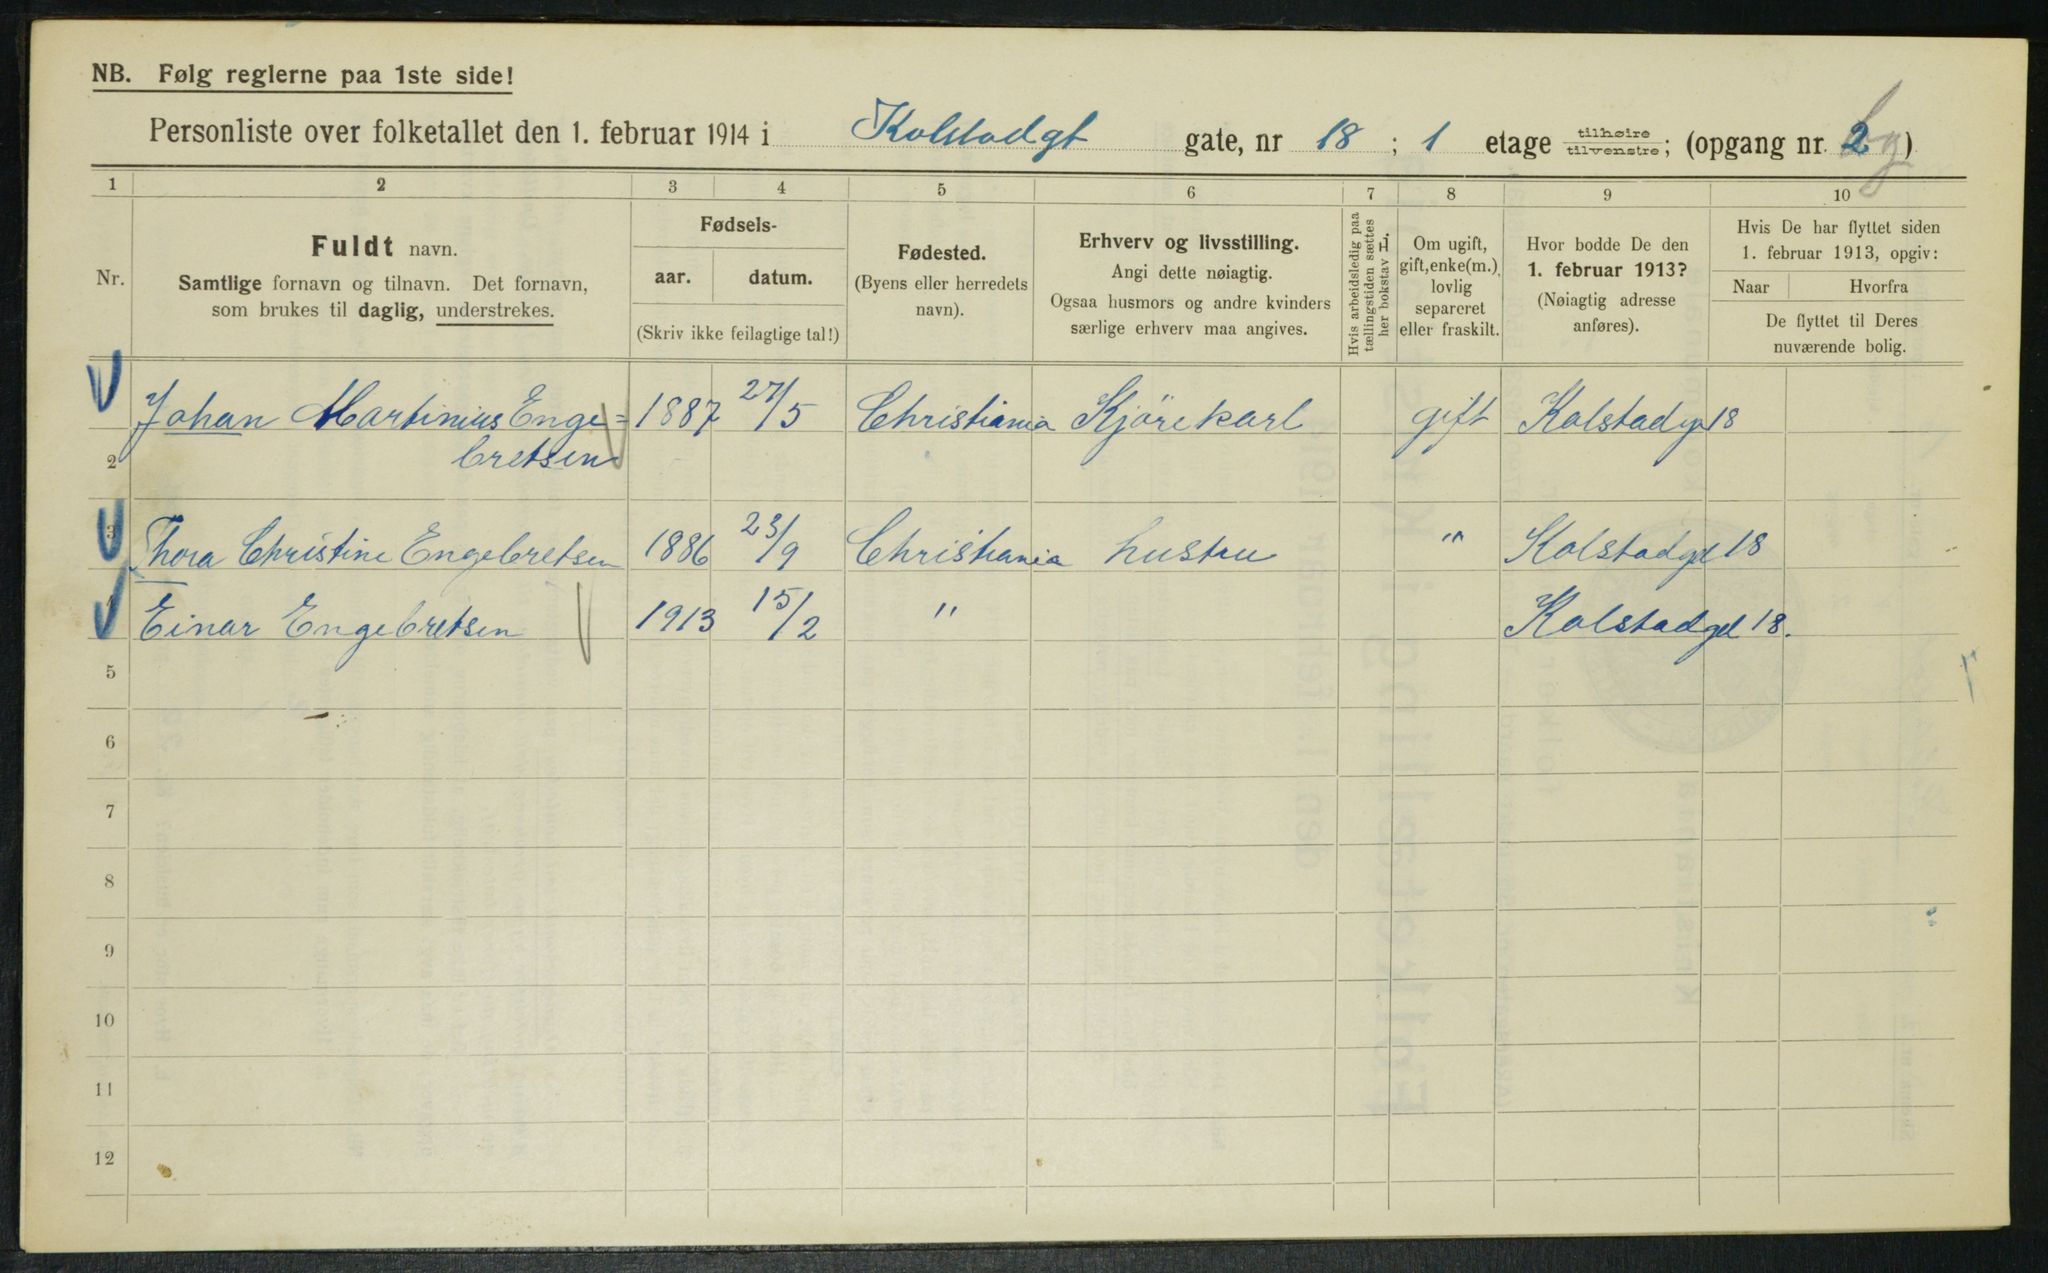 NB. Følg reglerne paa 1ste side!
Personliste over folketallet den 1. februar 1914 i Kolstadgt gate, nr 18 ; 1 etage tilhøire tilvenstre; (opgang nr. 2)
1 2 3 4 5 6 7 8 9 10
Nr.
Fuldt navn.
Samtlige fornavn og tilnavn. Det fornavn,
som brukes til daglig, understrekes.
Fødsels-
aar. datum.
(Skriv ikke feilagtige tal!)
Fødested.
(Byens eller herredets
navn).
Erhverv og livsstilling.
Angi dette nøiagtig.
Ogsaa husmors og andre kvinders
særlige erhverv maa angives.
Hvis arbeidsledig paa
tællingstiden sættes
her bokstav L.
Om ugift,
gift, enke(m.),
lovlig
separeret
eller fraskilt.
Hvor bodde De den
1. februar 1913?
(Nøiagtig adresse
anføres).
Hvis De har flyttet siden
1. februar 1913, opgiv:
Naar Hvorfra
De flyttet til Deres
nuværende bolig.
Johan Martinius Enge= 1887 27/5 Christiania Kjörekarl gift Kolstadgt 18
2 bretsen
3 Thora Christine Engebretsen 1886 23/9 Christiania hustru " Kolstadgt 18
4 Einar Engebretsen 1913 15/2 " Kolstadgt 18.
5
6
7
8
9
10
11
12